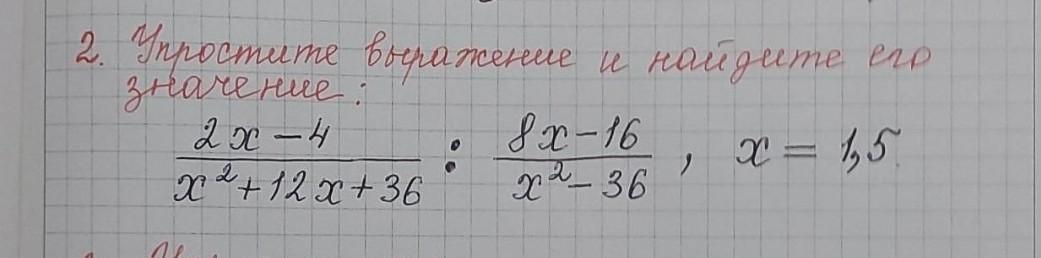 2. Упростите выражение и найдите его
значение:
(2x-4)/(x²+12x+36) : (8x-16)/(x²-36), x=1,5